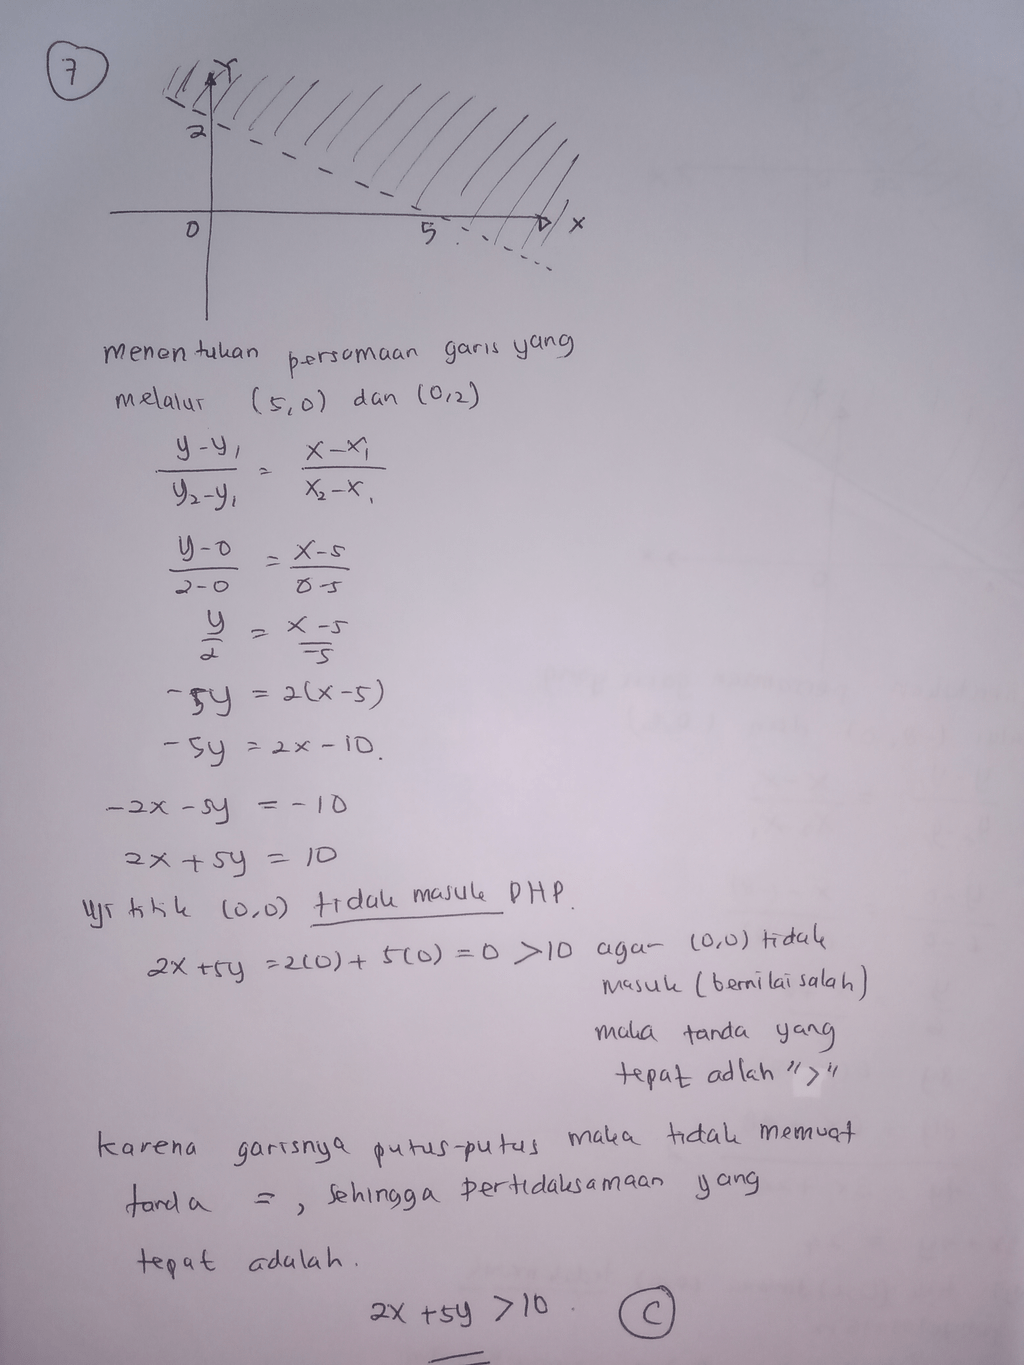 7
Y
2
0
5
X
menentukan persamaan garis yang
melalui (5,0) dan (0,2)
y-y₁ / y₂-y₁ = x-x₁ / x₂-x₁
y-0 / 2-0 = x-5 / 0-5
y / 2 = x-5 / -5
-5y = 2(x-5)
-5y = 2x-10.
-2x-5y = -10
2x+5y = 10
Uji titik (0,0) tidak masuk DHP.
2x+5y = 2(0)+5(0) = 0 >10 agar (0,0) tidak
masuk (bernilai salah)
maka tanda yang
tepat adlah ">"
Karena garisnya putus-putus maka tidak memuat
tanda =, sehingga pertidaksamaan yang
tepat adalah.
2x+5y >10. C